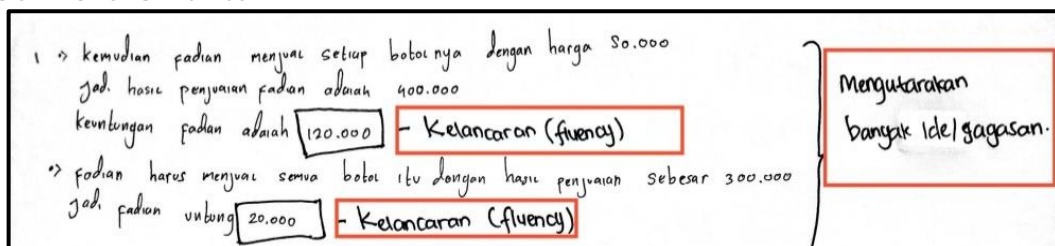 1 → kemudian fadian menjual setiap botolnya dengan harga 50.000
Jadi hasil penjualan fadian adalah 400.000
keuntungan fadian adalah 120.000 - Kelancaran (fluency)
→ fadian harus menjual semua botol itu dengan hasil penjualan sebesar 300.000
Jadi fadian untung 20.000 - Kelancaran (fluency)
Mengutarakan
banyak ide/gagasan.